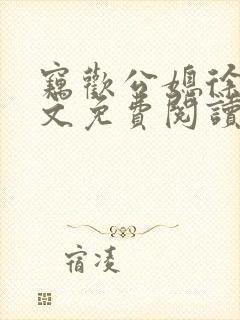 竊歡公媳徐
文免費閱讀
宿凌